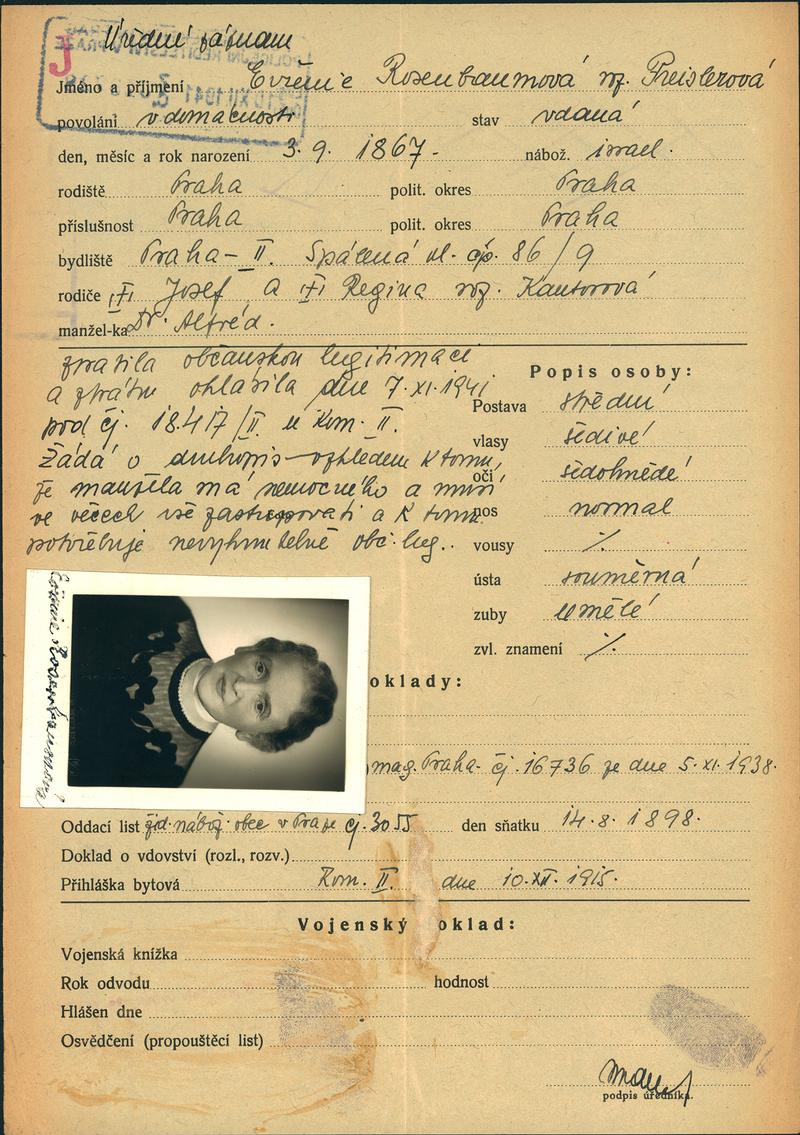 Úřední záznam
J
Jméno a příjmení Evženie Rosenbaumová roz. Preislerová
povolání v domácnosti stav vdaná
den, měsíc a rok narození 3. 9. 1867. nábož. israel.
rodiště Praha polit. okres Praha
příslušnost Praha polit. okres Praha
bydliště Praha – II. Spálená ul. čp. 86/9
rodiče Josef a Regina roz. Kantorová
manžel-ka Dr. Alfréd.
ztratila občanskou legitimaci
a ztrátu ohlásila dne 7. XI. 1941
pod čj. 18.417/II u Kom. II.
Žádá o druhopis vzhledem k tomu,
že manžela má nemocného a musí
ve věcech vše zastupovati a k tomu
potřebuje nevyhnutelně obč. leg..
Popis osoby:
Postava střední
vlasy šedivé
oči šedohnědé
nos normal
vousy ·/.
ústa souměrná
zuby umělé
zvl. znamení ·/.
Evženie Rosenbaumová
oklady:
mag. Praha čj. 16736 ze dne 5. XI. 1938.
Oddací list žid. nábož. obec v Praze čj. 3055 den sňatku 14. 8. 1898.
Doklad o vdovství (rozl., rozv.)
Přihláška bytová Kom. II. dne 10. XII. 1915.
Vojenský oklad:
Vojenská knížka
Rok odvodu hodnost
Hlášen dne
Osvědčení (propouštěcí list)
podpis úředníka.